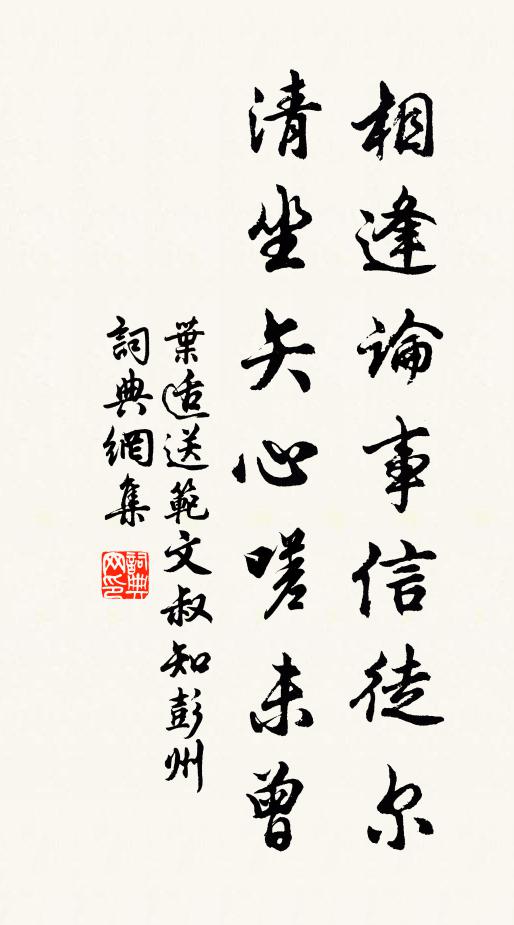 相逢論事信徒尔
清坐矢心嗟未曾
葉适送範文叔知彭州
詞典網集
詞典網印